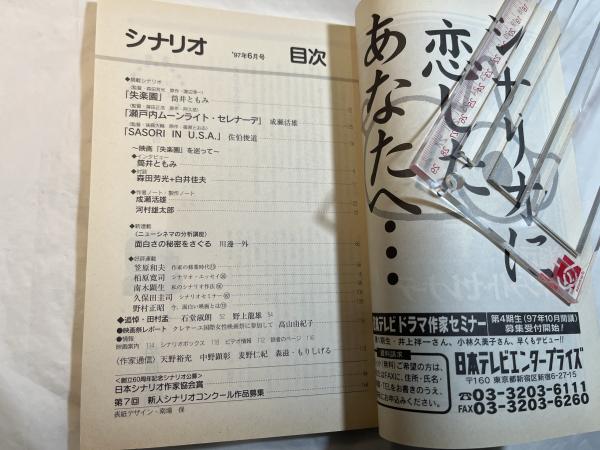 シナリオ
'97年6月号
目次
◆掲載シナリオ
「失楽園」 筒井ともみ
「瀬戸内ムーンライト・セレナーデ」 成瀬活雄
「SASORI IN U.S.A.」 佐伯俊道
〜映画「失楽園」を巡って〜
◆インタビュー
筒井ともみ
◆対談
森田芳光+白井佳夫
◆作者ノート・製作ノート
成瀬活雄
河村雄太郎
◆新連載
〈ニューシネマの分析講座〉
面白さの秘密をさぐる 川邊一外
◆好評連載
笠原和夫 作家の修業時代
柏原寛司 シナリオ・エッセイ
南木顕生 私のシナリオ作法
久保田圭司 シナリオセミナー
野村正昭 今、面白い映画とは
◆追悼・田村孟 石堂淑朗 52 野上龍雄 54
●映画祭レポート クレテーユ国際女性映画祭に参加して 高山由紀子
●情報
映画案内 114 シナリオボックス 118 ビデオ情報 112 読者のページ
〈作家通信〉天野裕充 中野顕彰 麦野仁紀 森滋・もりしげる
<創立60周年記念シナリオ公募>
日本シナリオ作家協会賞
第7回 新人シナリオコンクール作品募集
表紙デザイン・南場 保
シナリオに
恋した
あなたへ・・・
日本テレビ ドラマ作家セミナー
第4期生('97年10月開講)
募集受付開始!
期生・井上祥一さん、小林久美子さん、早くもデビュー!!
資料請求
(無料)ご希望の方は、
FAXに、住所・氏名・
TELをお書きのうえ、
にお申込みください。
日本テレビエンタープライズ
〒160 東京都新宿区新宿6-27-15
☎03-3203-6111
FAX03-3203-6260